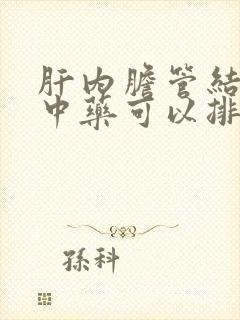 肝内膽管結
中藥可以排
孫科